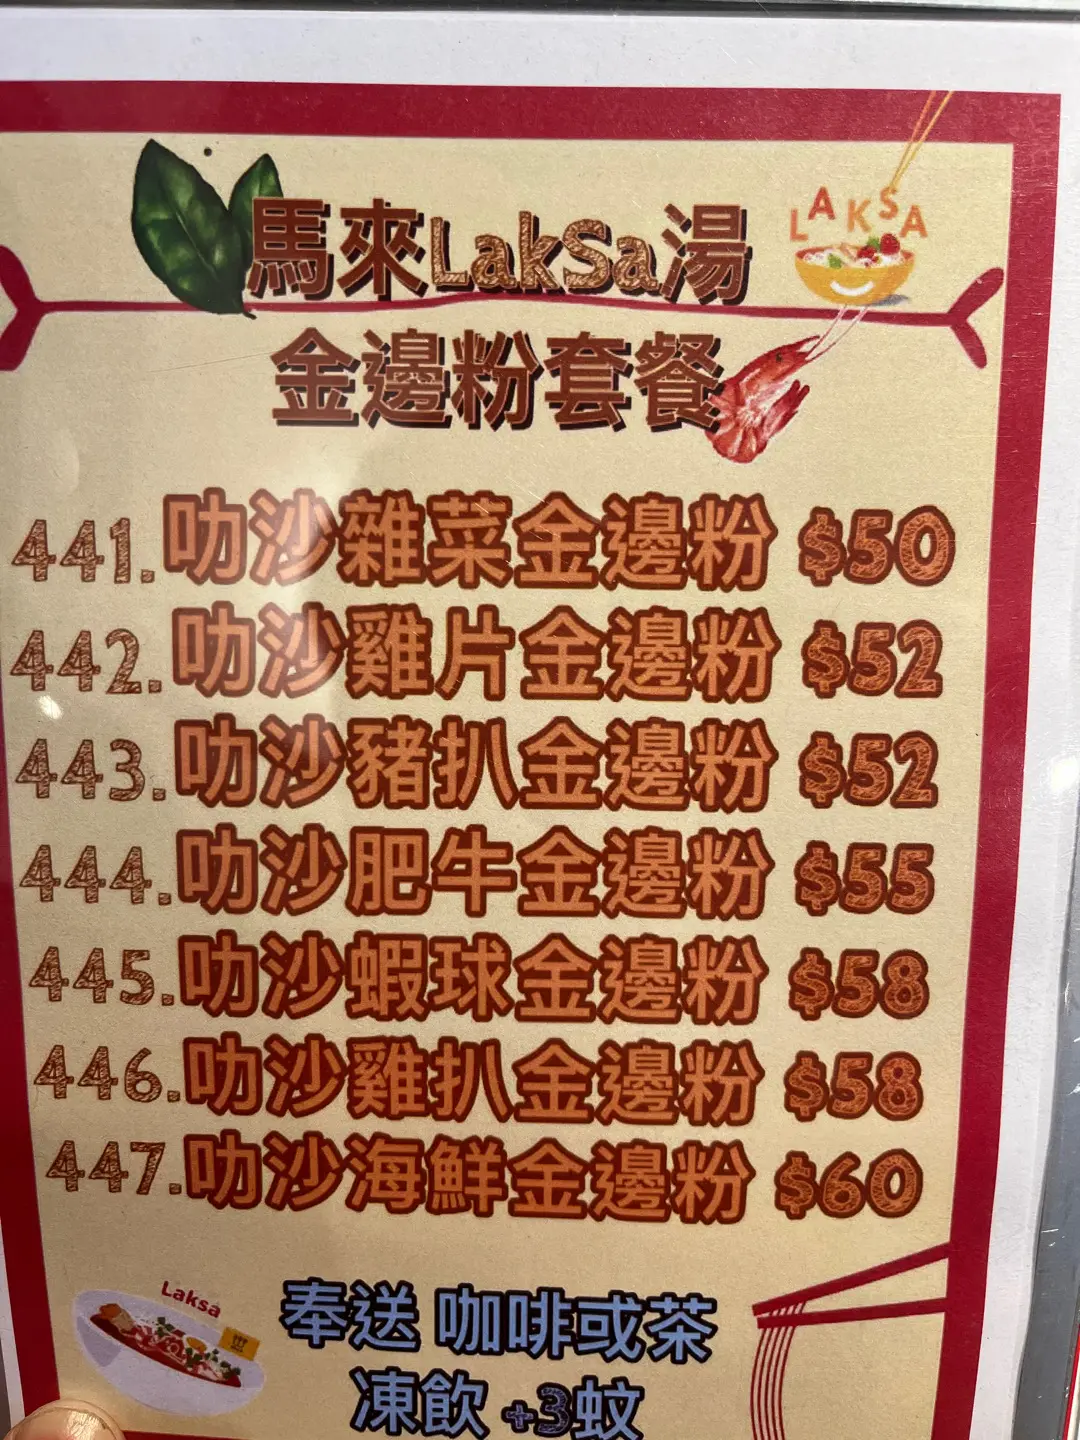 馬來LakSa湯
LAKSA
金邊粉套餐
441.叻沙雜菜金邊粉 $50
442.叻沙雞片金邊粉 $52
443.叻沙豬扒金邊粉 $52
444.叻沙肥牛金邊粉 $55
445.叻沙蝦球金邊粉 $58
446.叻沙雞扒金邊粉 $58
447.叻沙海鮮金邊粉 $60
Laksa
奉送 咖啡或茶
凍飲 +3蚊